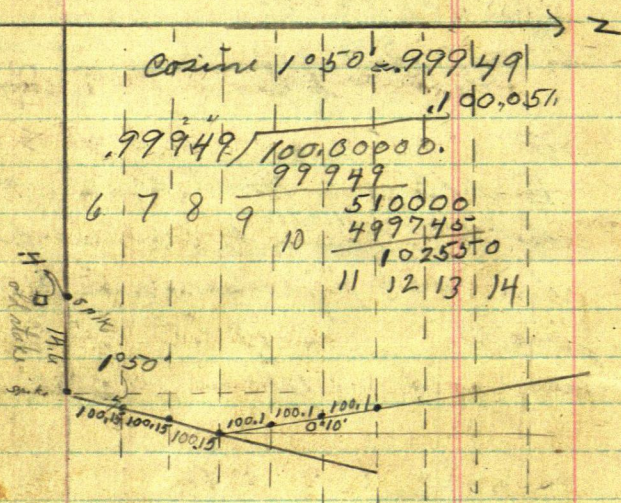 Z
Cosine 1°50' = .99949
.100,051
.99949)100.00000.
99949
510000
499745
102550
6 7 8 9 10 11 12 13 14
H
spike
14.6
old stake
1°50'
100.15 100.15 100.15 100.1 100.1 100.1
0°10'